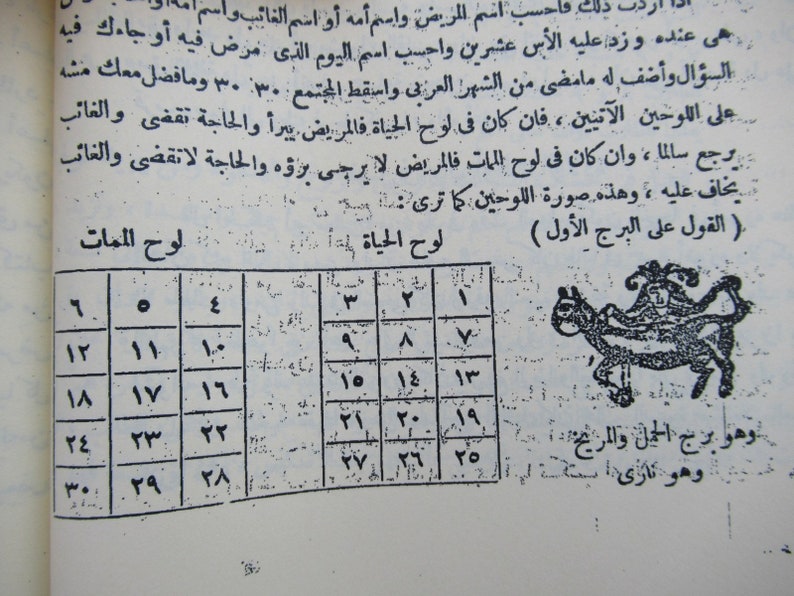 اذا اردت ذلك فاحسب اسم المريض واسم أمه أو اسم الغائب واسم أمه
هى عنده وزد عليه الأس عشرين واحسب اسم اليوم الذى مرض فيه أو جاءك فيه
السؤال وأضف له مامضى من الشهر العربى واسقط المجتمع ٣٠ ٣٠ ومافضل معك مشه
على اللوحين الآتيين ، فان كان فى لوح الحياة فالمريض يبرأ والحاجة تقضى والغائب
يرجع سالما ، وان كان فى لوح الممات فالمريض لا يرجى برؤه والحاجة لاتقضى والغائب
يخاف عليه ، وهذه صورة اللوحين كما ترى :
( القول على البرج الأول ) لوح الحياة لوح الممات
١ ٢ ٣ ٤ ٥ ٦
٧ ٨ ٩ ١٠ ١١ ١٢
١٣ ١٤ ١٥ ١٦ ١٧ ١٨
١٩ ٢٠ ٢١ ٢٢ ٢٣ ٢٤
٢٥ ٢٦ ٢٧ ٢٨ ٢٩ ٣٠
وهو برج الحمل والمريخ
وهو نارى